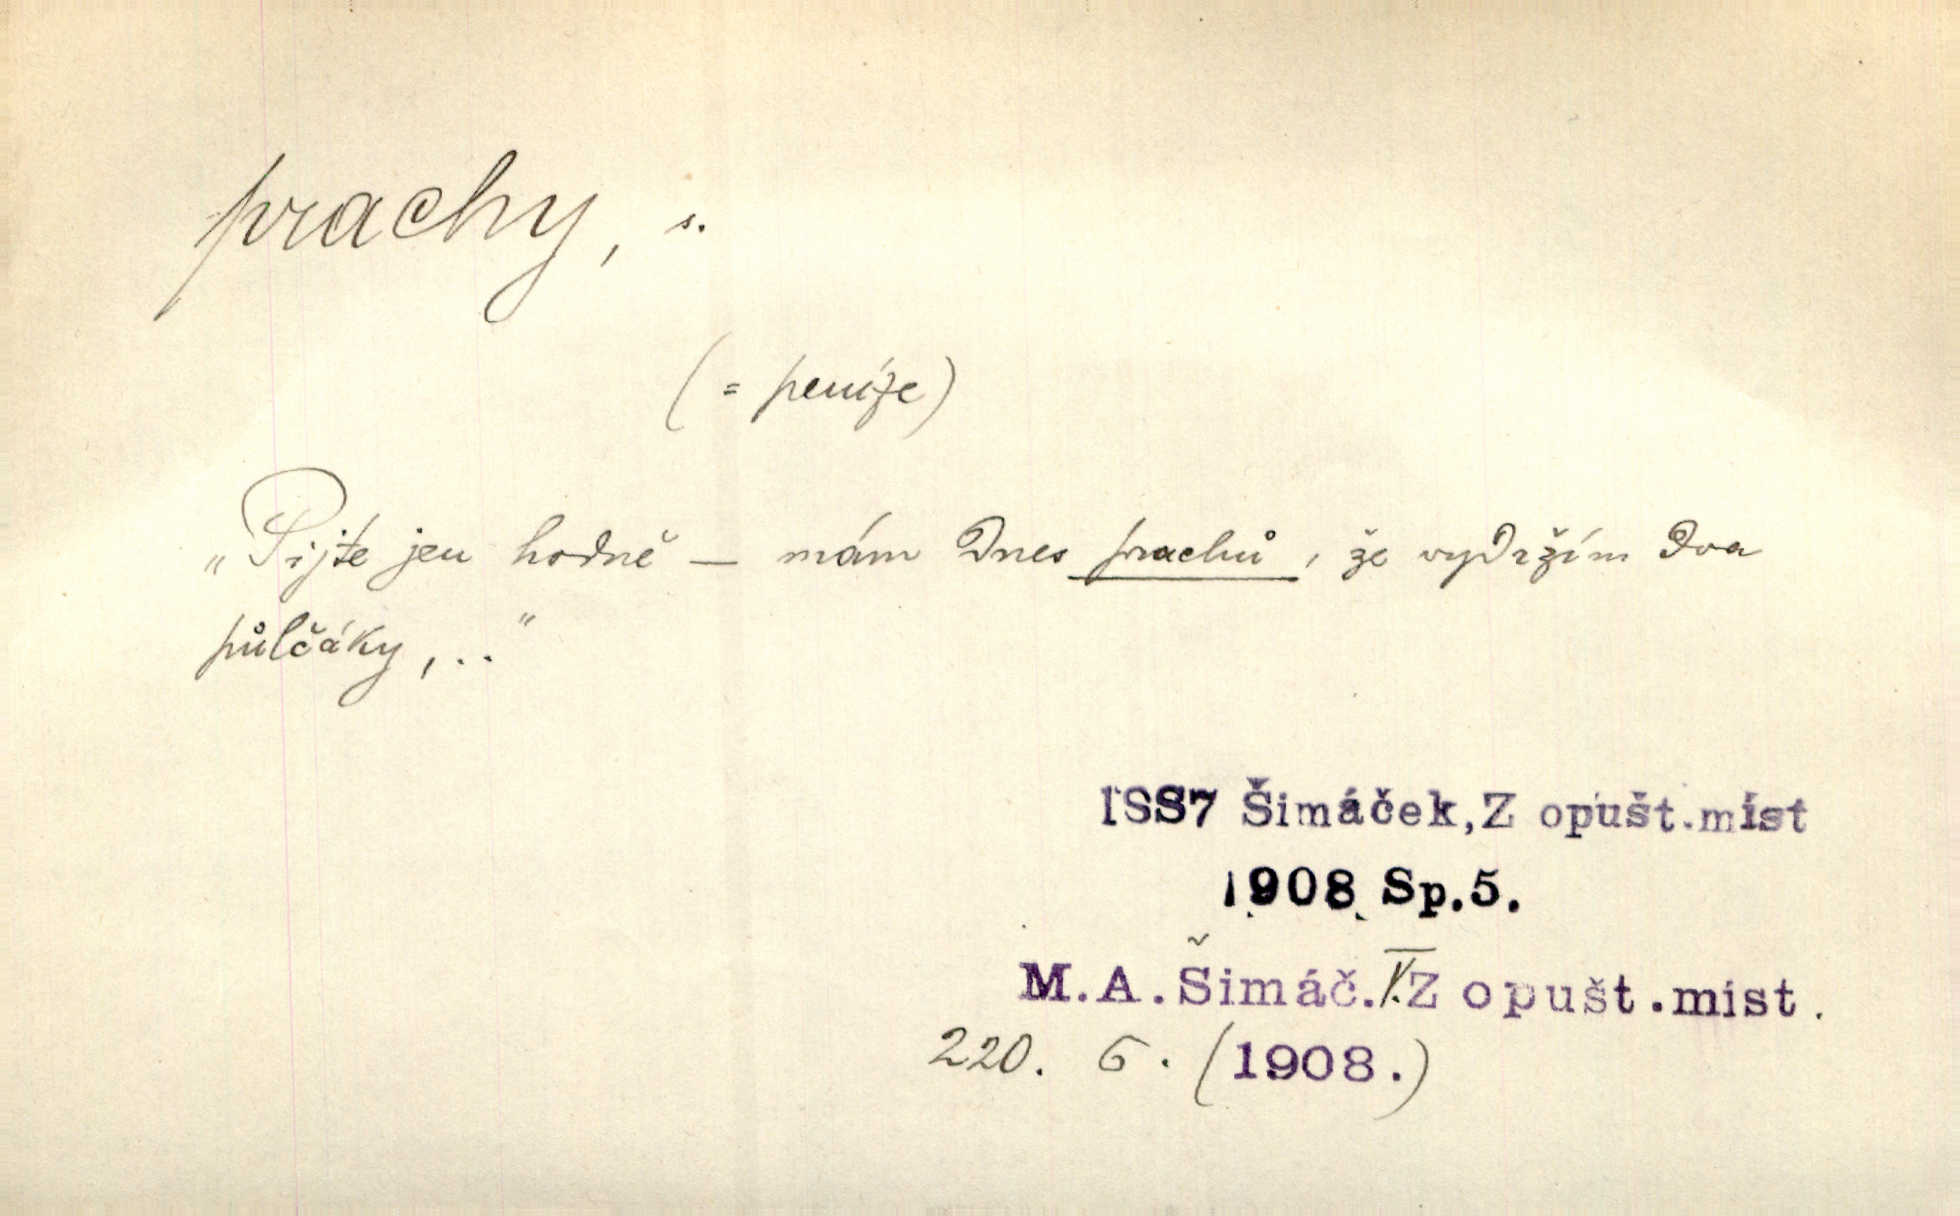 prachy, s.
(= peníze)
„Pijte jen hodně — mám dnes prachů, že vydržím dva
půlčáky,..“
1887 Šimáček, Z opušt.míst
1908 Sp.5.
M.A.Šimáč. V. Z opušt.míst.
220. 6. (1908.)